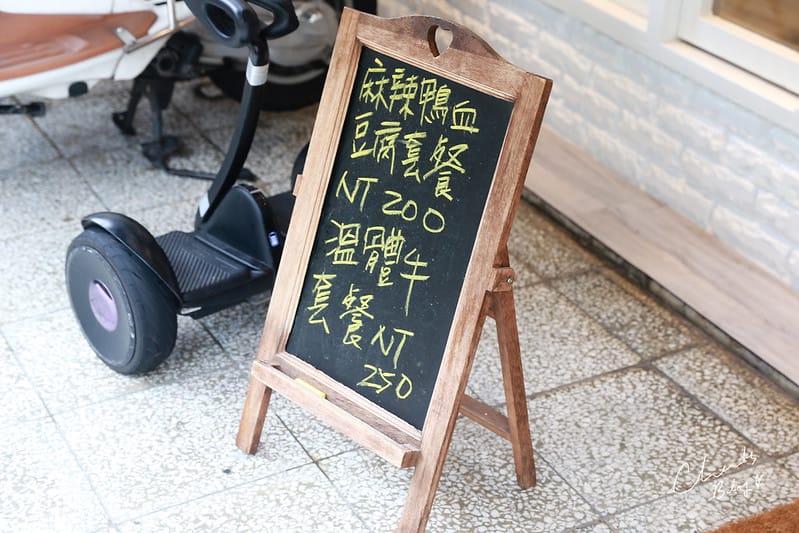 麻辣鴨血
豆腐套餐
NT 200
溫體牛
套餐NT
250